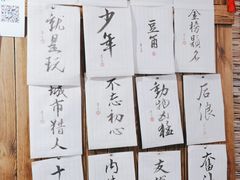 就是玩
少年
豆角
金榜题名
城市猎人
不忘初心
動物凶猛
后浪
十
内
友
奋